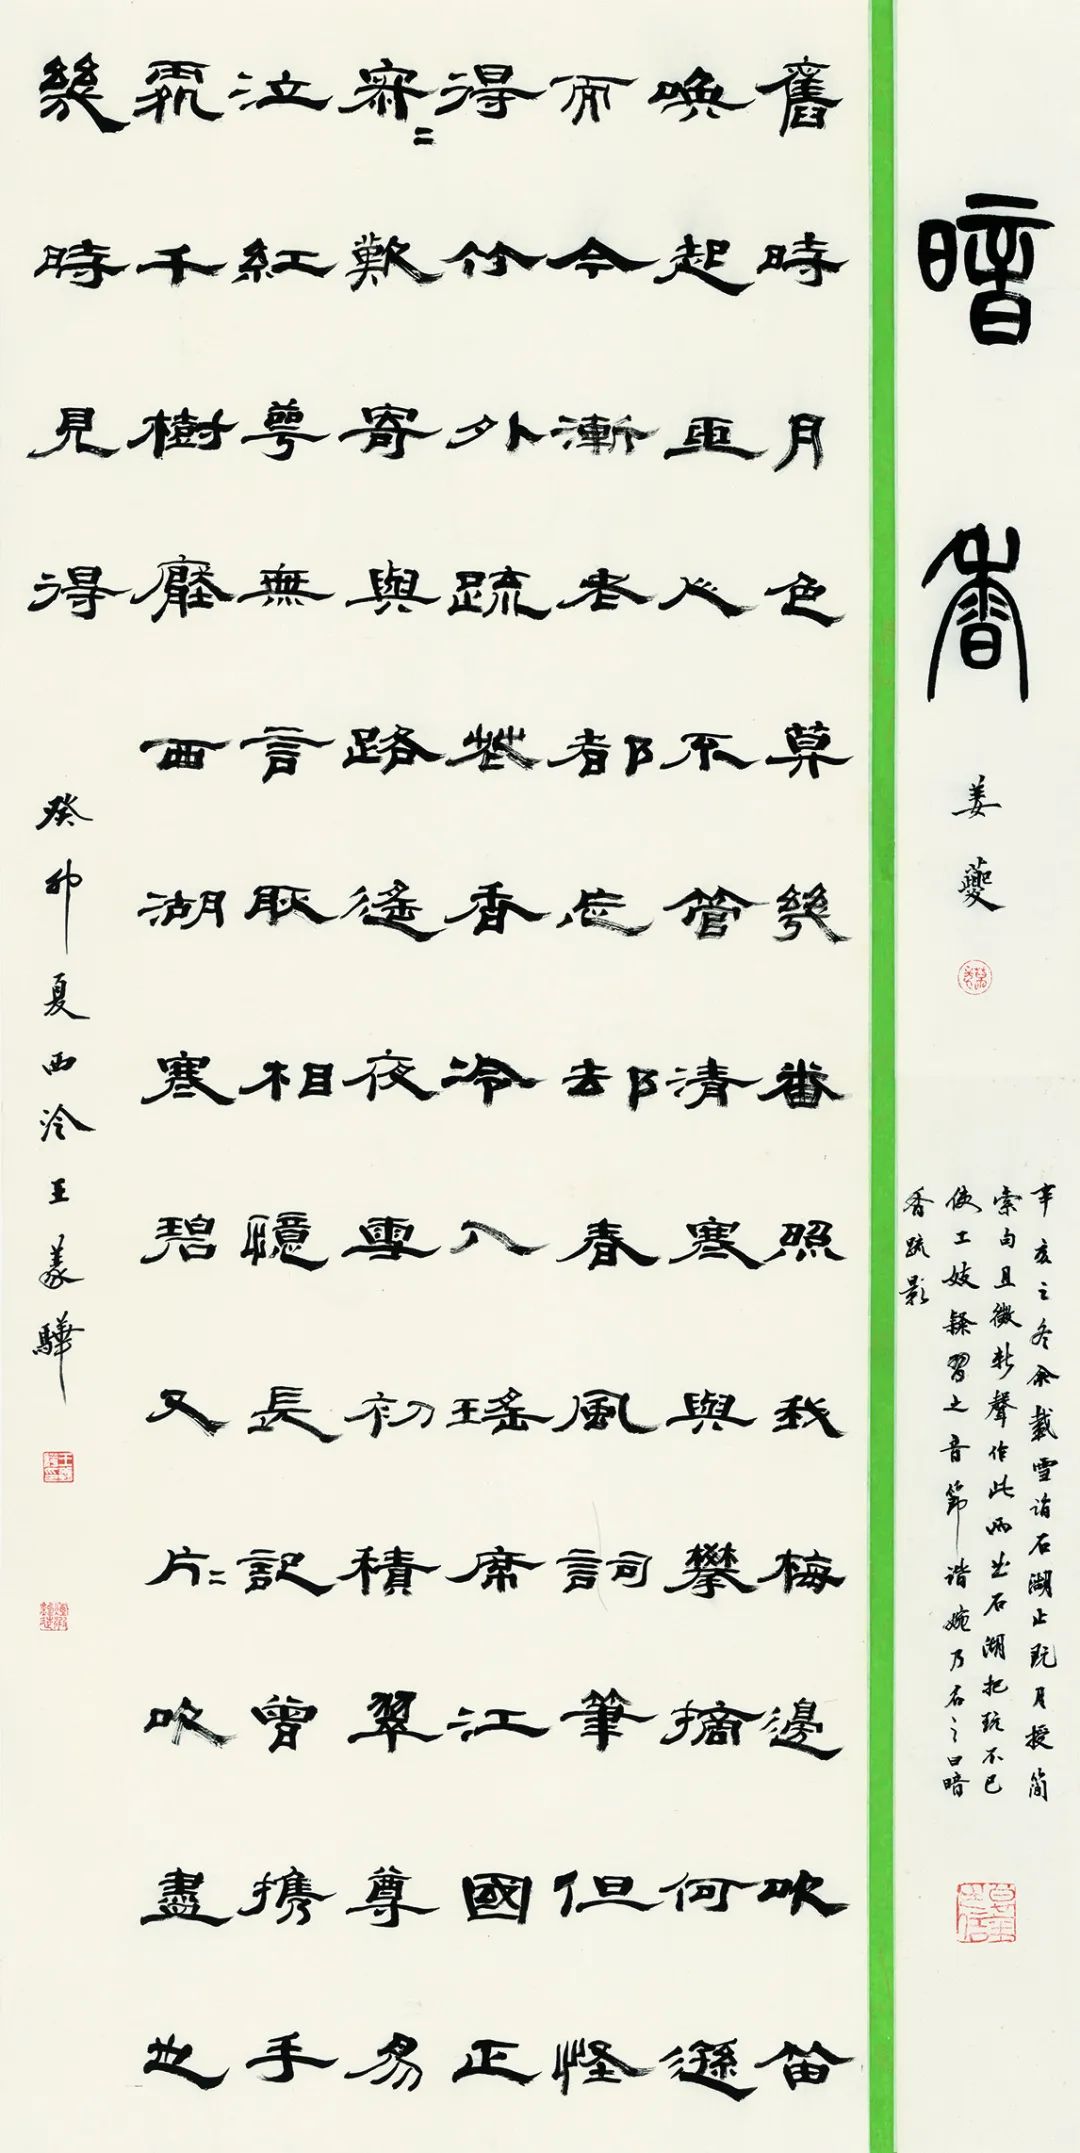 暗香
姜夔
辛亥之冬余載雪詣石湖止既月授簡
索句且徵新聲作此兩曲石湖把玩不已
使工妓隸習之音節諧婉乃名之曰暗
香疏影
舊時月色筭幾番照我梅邊吹笛
喚起玉人不管清寒與攀摘何遜
而今漸老都忘却春風詞筆但怪
得竹外疏花香冷入瑤席江國正
寂=歎寄與路遙夜雪初積翠尊易
泣紅萼無言耿相憶長記曾攜手
處千樹壓西湖寒碧又片=吹盡也
幾時見得
癸卯夏西泠王義驊